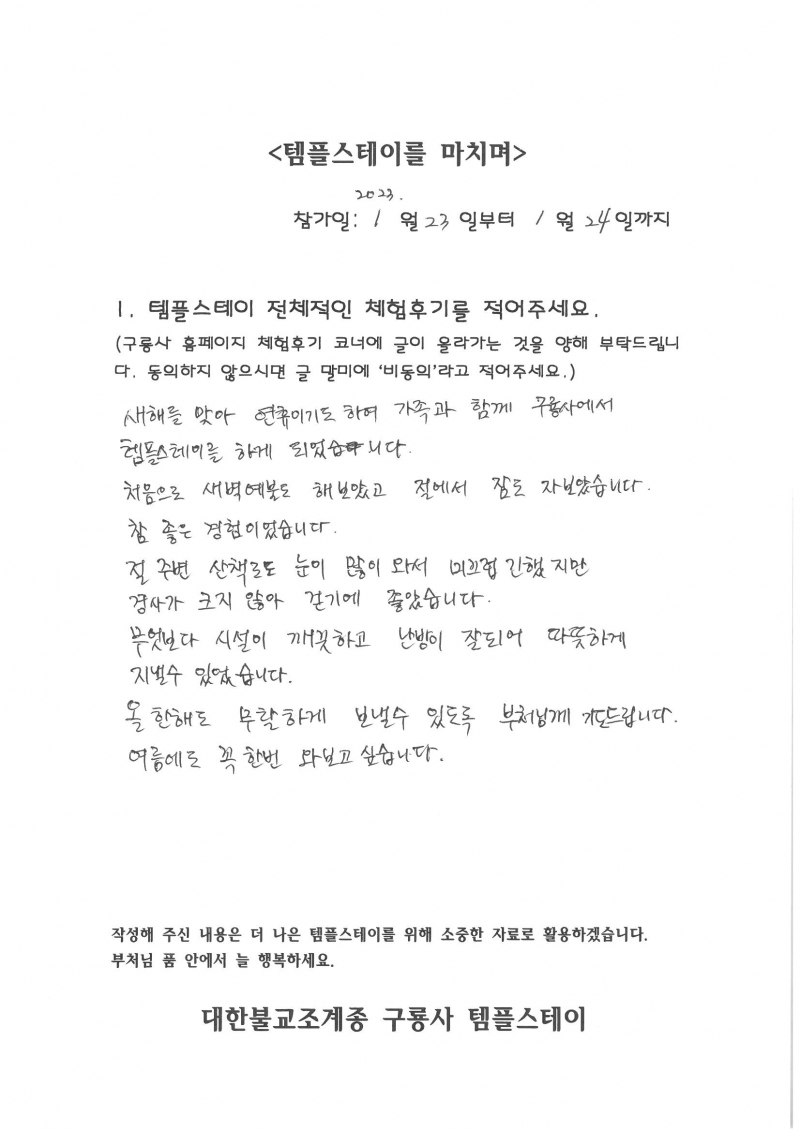 <템플스테이를 마치며>
2023.
참가일: 1 월 23 일부터 1 월 24 일까지
1. 템플스테이 전체적인 체험후기를 적어주세요.
(구룡사 홈페이지 체험후기 코너에 글이 올라가는 것을 양해 부탁드립니
다. 동의하지 않으시면 글 말미에 '비동의'라고 적어주세요.)
새해를 맞아 연휴이기도 하여 가족과 함께 구룡사에서
템플스테이를 하게 되었습니다.
처음으로 새벽예불도 해보았고 절에서 잠도 자보았습니다.
참 좋은 경험이었습니다.
절 주변 산책로도 눈이 많이 와서 미끄럽긴했지만
경사가 크지 않아 걷기에 좋았습니다.
무엇보다 시설이 깨끗하고 난방이 잘되어 따뜻하게
지낼수 있었습니다.
올 한해도 무탈하게 보낼수 있도록 부처님께 기도드립니다.
여름에도 꼭 한번 와보고 싶습니다.
작성해 주신 내용은 더 나은 템플스테이를 위해 소중한 자료로 활용하겠습니다.
부처님 품 안에서 늘 행복하세요.
대한불교조계종 구룡사 템플스테이